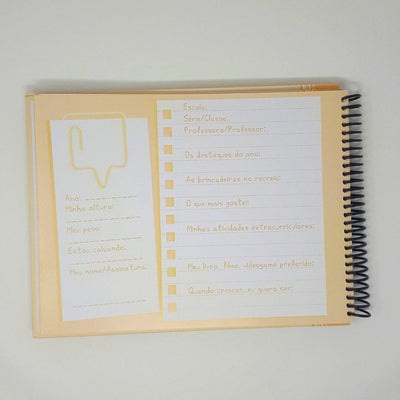 Ano:
Minha altura:
Meu peso:
Estou calçando:
Meu nome/Assinatura:
Escola:
Série/Classe:
Professora/Professor:
Os destaques do ano:
As brincadeiras no recreio:
O que mais gostei:
Minhas atividades extracurriculares:
Meu livro, filme, videogame preferido:
Quando crescer, eu quero ser: